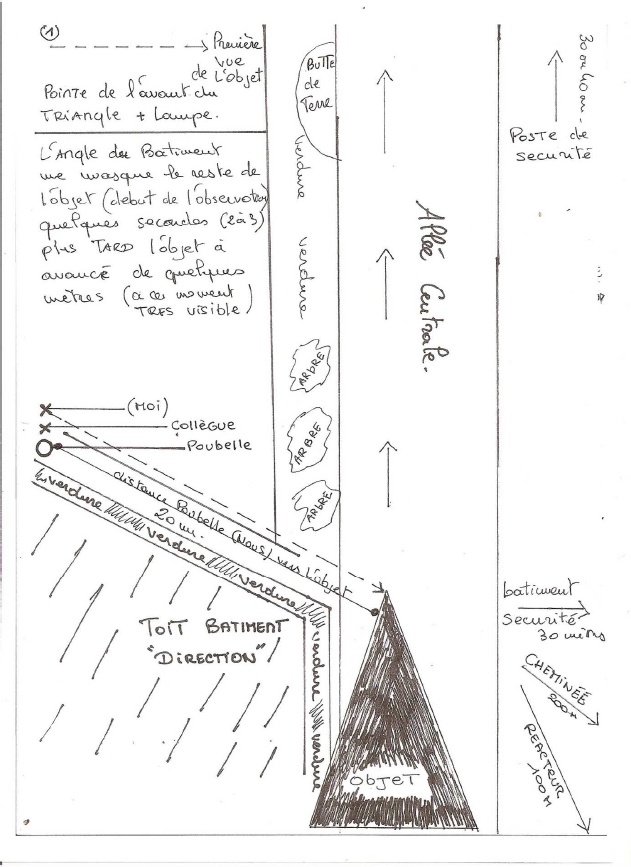 1
Première
vue
de l'objet
Pointe de l'avant du
TRIANGLE + Lampe.
L'Angle du Batiment
me masque le reste de
l'objet (debut de l'observation)
quelques secondes (2à3)
plus TARD l'objet à
avancé de quelques
mètres (a ce moment
TRES visible)
Butte
de
Terre
verdure
verdure
ARBRE
ARBRE
ARBRE
Allée Centrale.
30 ou 40 m.
POSTE de
securité
(MOI)
Collègue
Poubelle
distance Poubelle (Nous) vers l'objet
20 m.
verdure
verdure
verdure
verdure
verdure
TOIT BATIMENT
"DIRECTION"
OBJET
batiment
Securité
30 mtrs
CHEMINÉE
200 M
REACTEUR
100 M